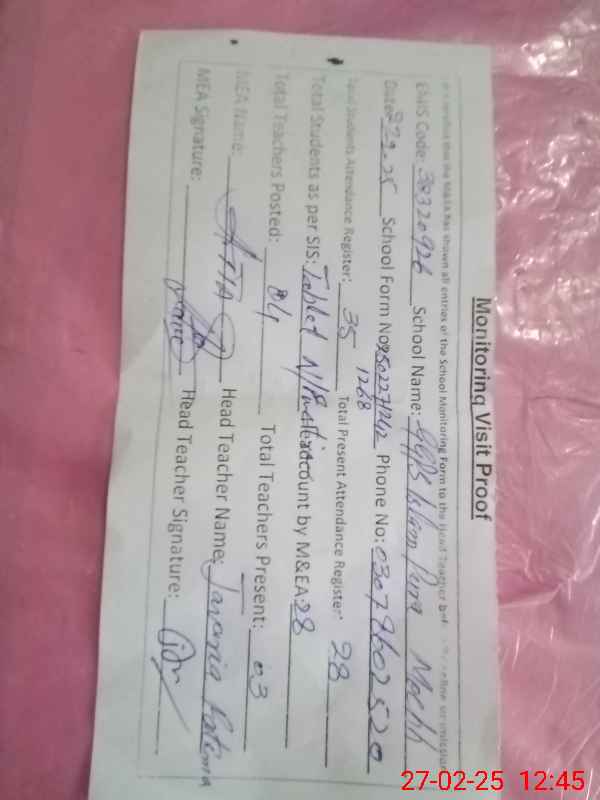 Monitoring Visit Proof
It is certified that the M&EA has shown all entries of the School Monitoring Form to the Head Teacher
EMIS Code: 38320926 School Name: GGPS Islam Pura
Date: School Form No: Phone No: 03078602520
1268
Total Students Attendance Register: 35 Total Present Attendance Register: 28
Total Students as per SIS: Tablet N/ account by M&EA: 28
Total Teachers Posted: 04 Total Teachers Present: 03
MEA Name: Head Teacher Name: Fatima
MEA Signature: Head Teacher Signature:
27-02-25 12:45